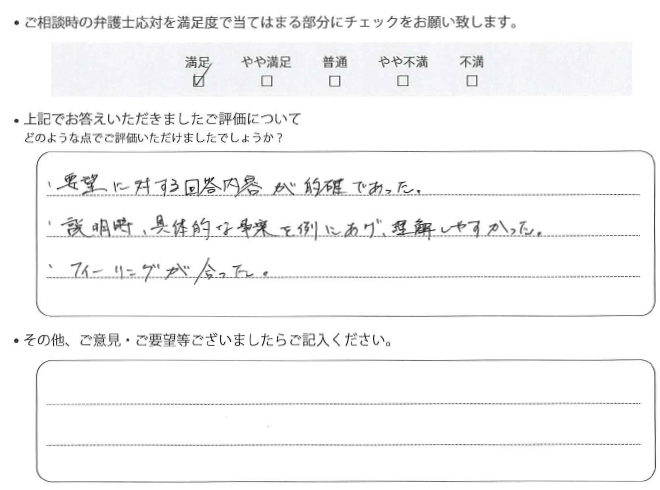 • ご相談時の弁護士応対を満足度で当てはまる部分にチェックをお願い致します。
満足 やや満足 普通 やや不満 不満
☑ □ □ □ □
• 上記でお答えいただきましたご評価について
どのような点でご評価いただけましたでしょうか？
・要望に対する回答内容が的確であった。
・説明時、具体的な事案を例にあげ、理解しやすかった。
・フィーリングが合った。
• その他、ご意見・ご要望等ございましたらご記入ください。